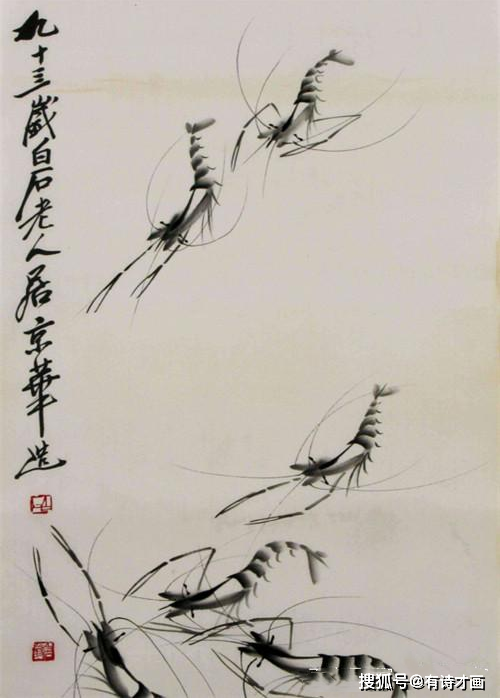 九十三歲白石老人居京華造
搜狐号@有诗才画